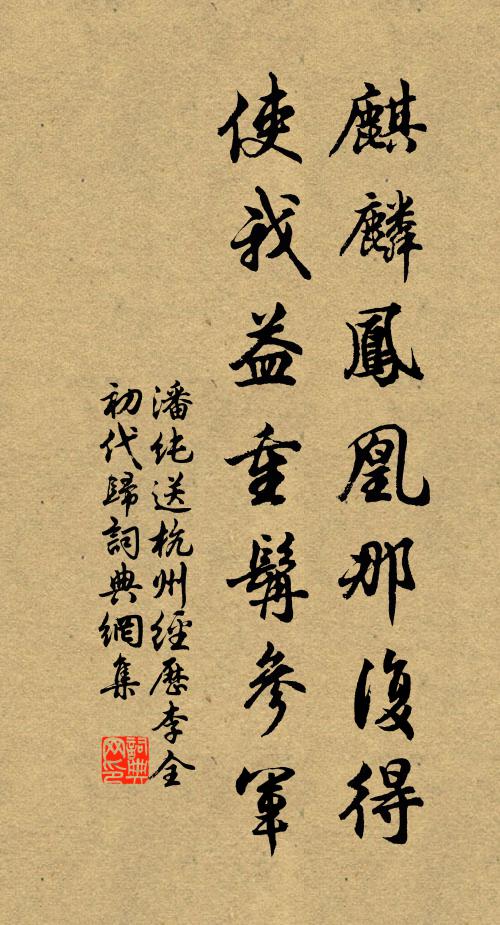 麒麟鳳凰那復得
使我益重髯參軍
潘純送杭州經歷李全
初代歸詞典網集
詞典
网印